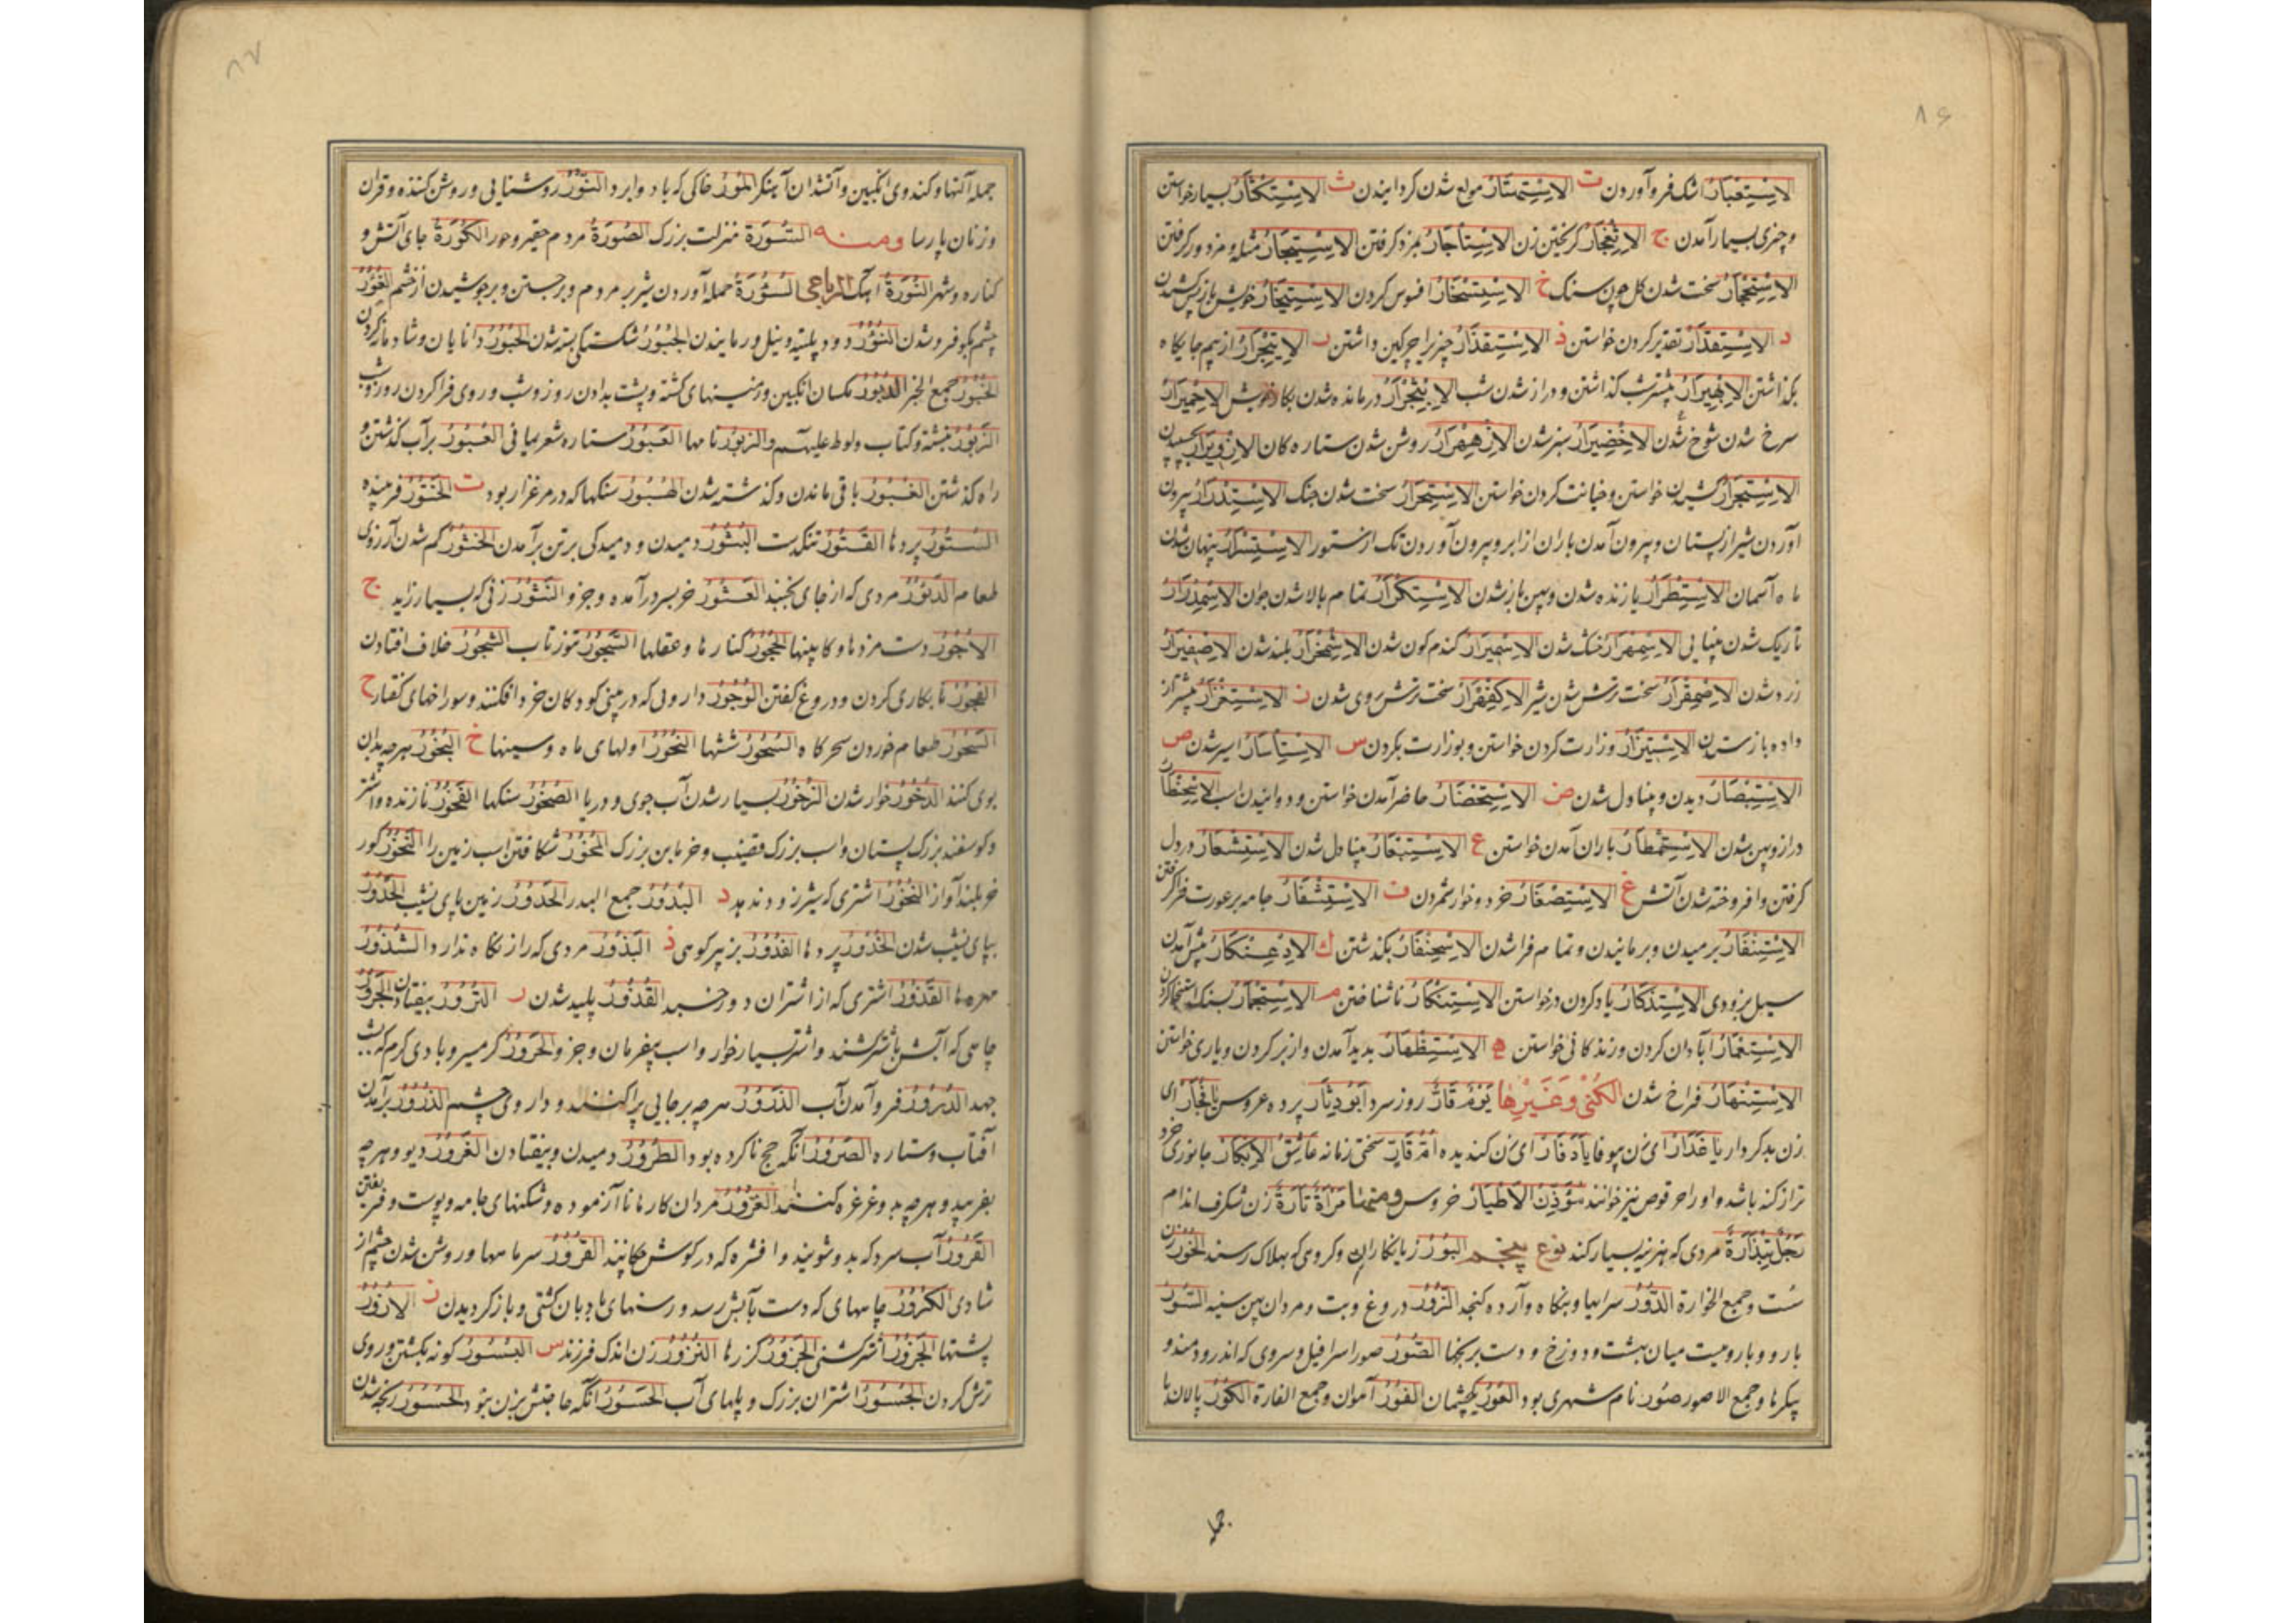 ۸۶
الاِسْتِعْبَارُ اشک فرو آوردن ت الاِسْتِهْتَارُ مولع شدن کردانیدن ث الاِسْتِكْثَارُ بسیار خواستن
و چیزی بسیار آمدن ج الاستیجار بمزد کرفتن
سخت شدن کل چون سنک خ الاستسخار افسوس کردن
د الاِسْتِقْدَارُ تقدیر کردن خواستن ذ الاِسْتِقْذَارُ چیز را چرکین داشتن ر از بیم جایکاه
بکذاشتن الابهیرار بیشتر شب کذاشتن و دراز شدن شب درمانده شدن بکار خویش الاحمیرار
سرخ شدن شوخ شدن الاخضیرار سبز شدن الازهرار روشن شدن ستاره کان
الاستجرار کشیدن خواستن و خیانت کردن خواستن الاستحرار سخت شدن جنک الاستدرار بیرون
آوردن شیر از پستان و بیرون آمدن باران از ابر و بیرون آوردن تک از ستور الاستسرار پنهان شدن
ماه آسمان الاستکرار تمام بالا شدن جوان الاسمدرار
تاریک شدن بینایی الاسمهرار خشک شدن الاسمیرار کندم کون شدن الاشمخرار بلند شدن الاصفیرار
زرد شدن الاصمقرار سخت ترش شدن شیر الاکفهرار سخت ترش روی شدن ز الاستغزار بیشتر از
داده باز ستدن الاستیزار وزارت کردن خواستن و بوزارت بکردن س الاستیسار اسیر شدن ص
الاستبصار دیدن و بینا دل شدن ض الاستحضار حاضر آمدن خواستن و دوانیدن اسب
دراز و پهن شدن الاستمطار باران آمدن خواستن ع الاستشعار در دل
کرفتن و افروخته شدن آتش غ الاستصغار خرد و خوار شمردن ف الاستثفار جامه بر عورت فرا کرفتن
الاستنفار برمیدن و برمانیدن و تمام فرا شدن الاسحنفار بکذشتن ك الادعنکار پیش آمدن
سیل بزودی الاستذکار یاد کردن درخواستن الاستنکار ناشناختن م الاستجمار بسنک استنجا کردن
الاستعمار آبادان کردن و زندکانی خواستن ه الاستظهار پدید آمدن و از بر کردن و یاری خواستن
الاستنهار فراخ شدن الکُنی وَغَیرِها یوم قار روز سرد ابو دثار پرده عروس یا فجار ای
زن بدکردار یا غدار ای زن بیوفا یا دفار ای زن کندیده ام قار سختی زمانه عاشق الابکار جانوری خرد
تر از کنه باشد و او را حرقوص نیز خوانند مؤذن الاطیار خروس ومنها مرأة تارة زن شکرف اندام
رجل تبذارة مردی که هزینه بسیار کند نوع پنجم البور زیانکاران و کروهی که بهلاک رسند الخور زن
سست و جمع الخوارة الدور سرایها و بنکاه و آرده کنجد الزور دروغ و بت و مردان پهن سینه السور
بارو و باروییست میان بهشت و دوزخ و دست برنجنها الصور صور اسرافیل و سروی که اندرو دمند و
پیکرها و جمع الاصور صور نام شهری بود العور یکچشمان الفور آهوان و جمع الفارة الکور پالانها
جمله
۸۷
جمله آلتها و کندوی انکبین و آتشدان آهنکر المور خاکی که باد وابرد النور روشنایی و روشن کننده و قرآن
و زنان پارسا ومنه السورة منزلت بزرک الصورة مردم حقیر و حور الکورة جای آتش و
کناره و شهر النورة آهک الرباعی السورة حمله آوردن شیر بر مردم و برجستن و برجوشیدن از خشم الغور
چشم بکو فرو شدن النور دود پلیته و نیل و رمانیدن الجبور شکستکی بسته شدن الحبور دانایان و شادمانه کردن
الخبور جمع الخبر الدبور مکسان انکبین و زمینهای کشته و پشت بدادن روز و شب و روی فرا کردن روز و شب
الزبور نبشته و کتاب و لوط علیهم و الزبور نامها العبور ستاره شعر یمانی العبور بر آب کذشتن و
راه کذشتن الغبور باقی ماندن و کذشته شدن الهبور سنکها که در مرغزار بود ت الختور فریبنده
الستور پردها القتور تنکدست البثور دمیدن و دمیدکی بر تن برآمدن الخثور کم شدن آرزوی
طعام الدثور مردی که از جای نجنبد العثور خر بسر درآمده وجزو النثور زنی که بسیار زاید ج
الاجور دست مزدها و کابینها الحجور کنارها و عقلها السجور تنور تاب الشجور خلاف افتادن
الفجور نابکاری کردن و دروغ کفتن الوجور دارویی که در بینی کودکان خرد افکنند و سوراخهای کفتار ح
السحور طعام خوردن سحر کاه السحور ششها النحور اولهای ماه و سینها خ البخور هرچه بدان
بوی کنند الدخور خوار شدن الزخور بسیار شدن آب جوی و دریا الصخور سنکها الفخور نازنده و اشتر
و کوسفند بزرک پستان و اسب بزرک قضیب و خرمابن بزرک المخور شکافتن اسب زمین را النخور کور
خر بلند آواز النخور اشتری که شیر زود ندهد د البدور جمع البدر الحدور زمین پای نشیب الحدور
بپای نشیب شدن الخدور پردها الفدور بز پیر کوهی ذ البذور مردی که راز نکاه ندارد الشذور
مهرها القذور اشتری که از اشتران دور خسبد القذور پلید شدن ر الترور بیفتادن الجرور
چاهی که آبش باشتر کشند و اشتر بسیار خوار و اسب بیفرمان وجزو الحرور کرمسیر و بادی کرم که بشب
جهد الدرور فرو آمدن آب الذرور هرچه بر جایی پراکنند و داروی چشم الذرور برآمدن
آفتاب و ستاره الصرور آنکه حج ناکرده بود الطرور دمیدن و بیفتادن الغرور دیو و هرچه
بفریبد و هرچه بدو غرغره کنند الغرور مردان کارها نا آزموده و شکنهای جامه و پوست و فریفتن
القرور آب سرد که بدو شویند و افشره که در کوش چکانند القرور سرمامها و روشن شدن چشم از
شادی الکرور چاههای که دست بآبش رسد و رسنهای بادبان کشتی و بازکردیدن ز الازور
پشتها الجزور اشتر کشتنی الجزور کزرها النزور زن اندک فرزند س البسور کونه بکشتن و روی
ترش کردن الجسور اشتران بزرک و پلهای آب الحسور آنکه حاجتش بزن نبود الحسور رنجه شدن